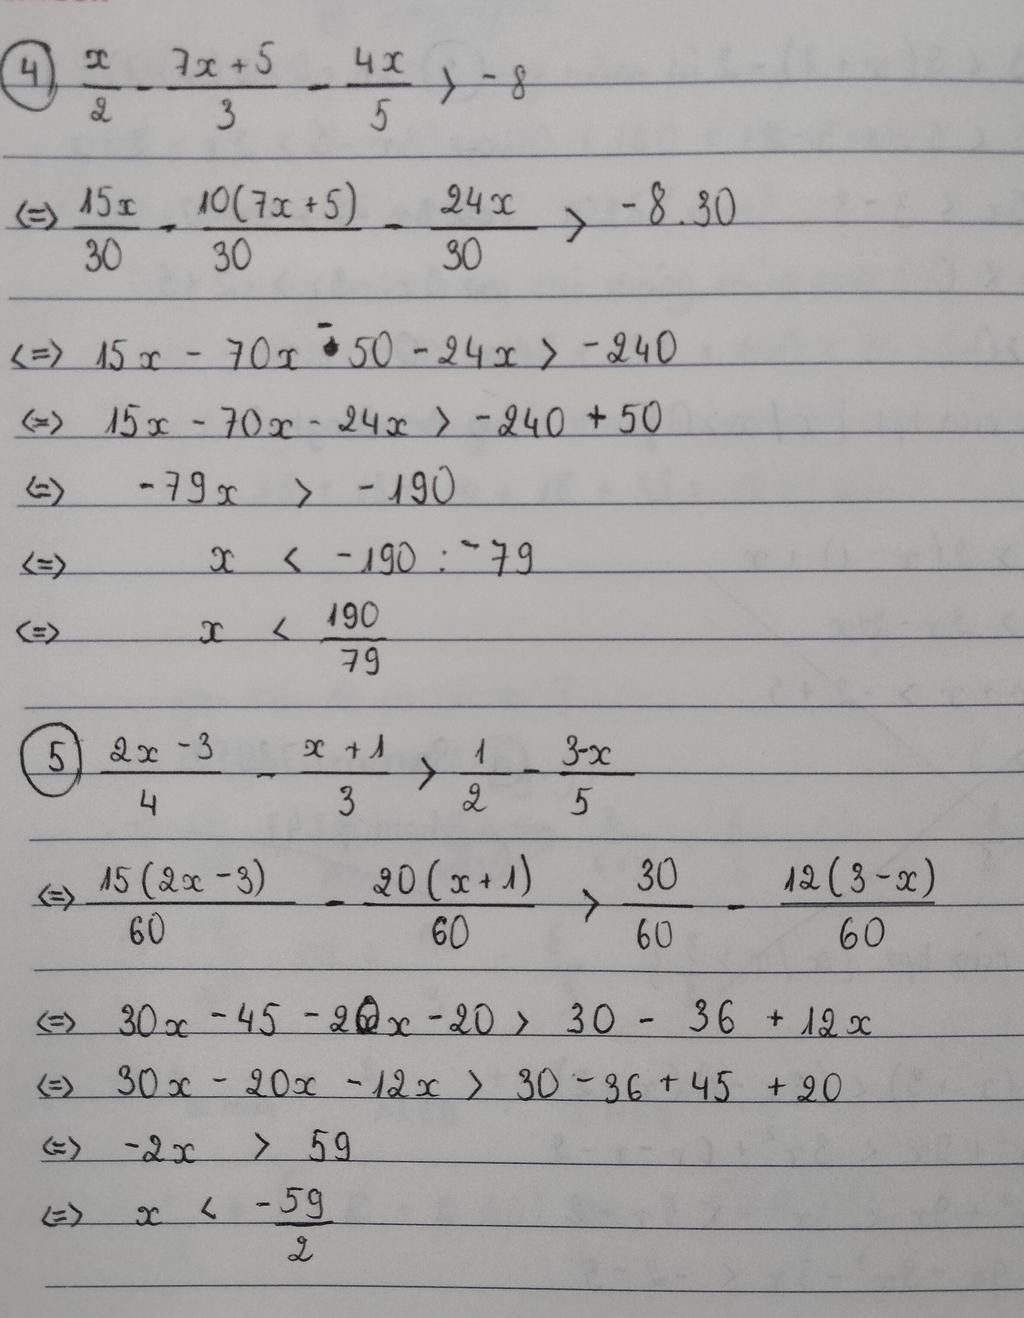 ④ x/2 - (7x+5)/3 - 4x/5 > -8
<=> 15x/30 - 10(7x+5)/30 - 24x/30 > -8.30
<=> 15x - 70x - 50 - 24x > -240
<=> 15x - 70x - 24x > -240 + 50
<=> -79x > -190
<=> x < -190 : -79
<=> x < 190/79
⑤ (2x-3)/4 - (x+1)/3 > 1/2 - (3-x)/5
<=> 15(2x-3)/60 - 20(x+1)/60 > 30/60 - 12(3-x)/60
<=> 30x - 45 - 20x - 20 > 30 - 36 + 12x
<=> 30x - 20x - 12x > 30 - 36 + 45 + 20
<=> -2x > 59
<=> x < -59/2